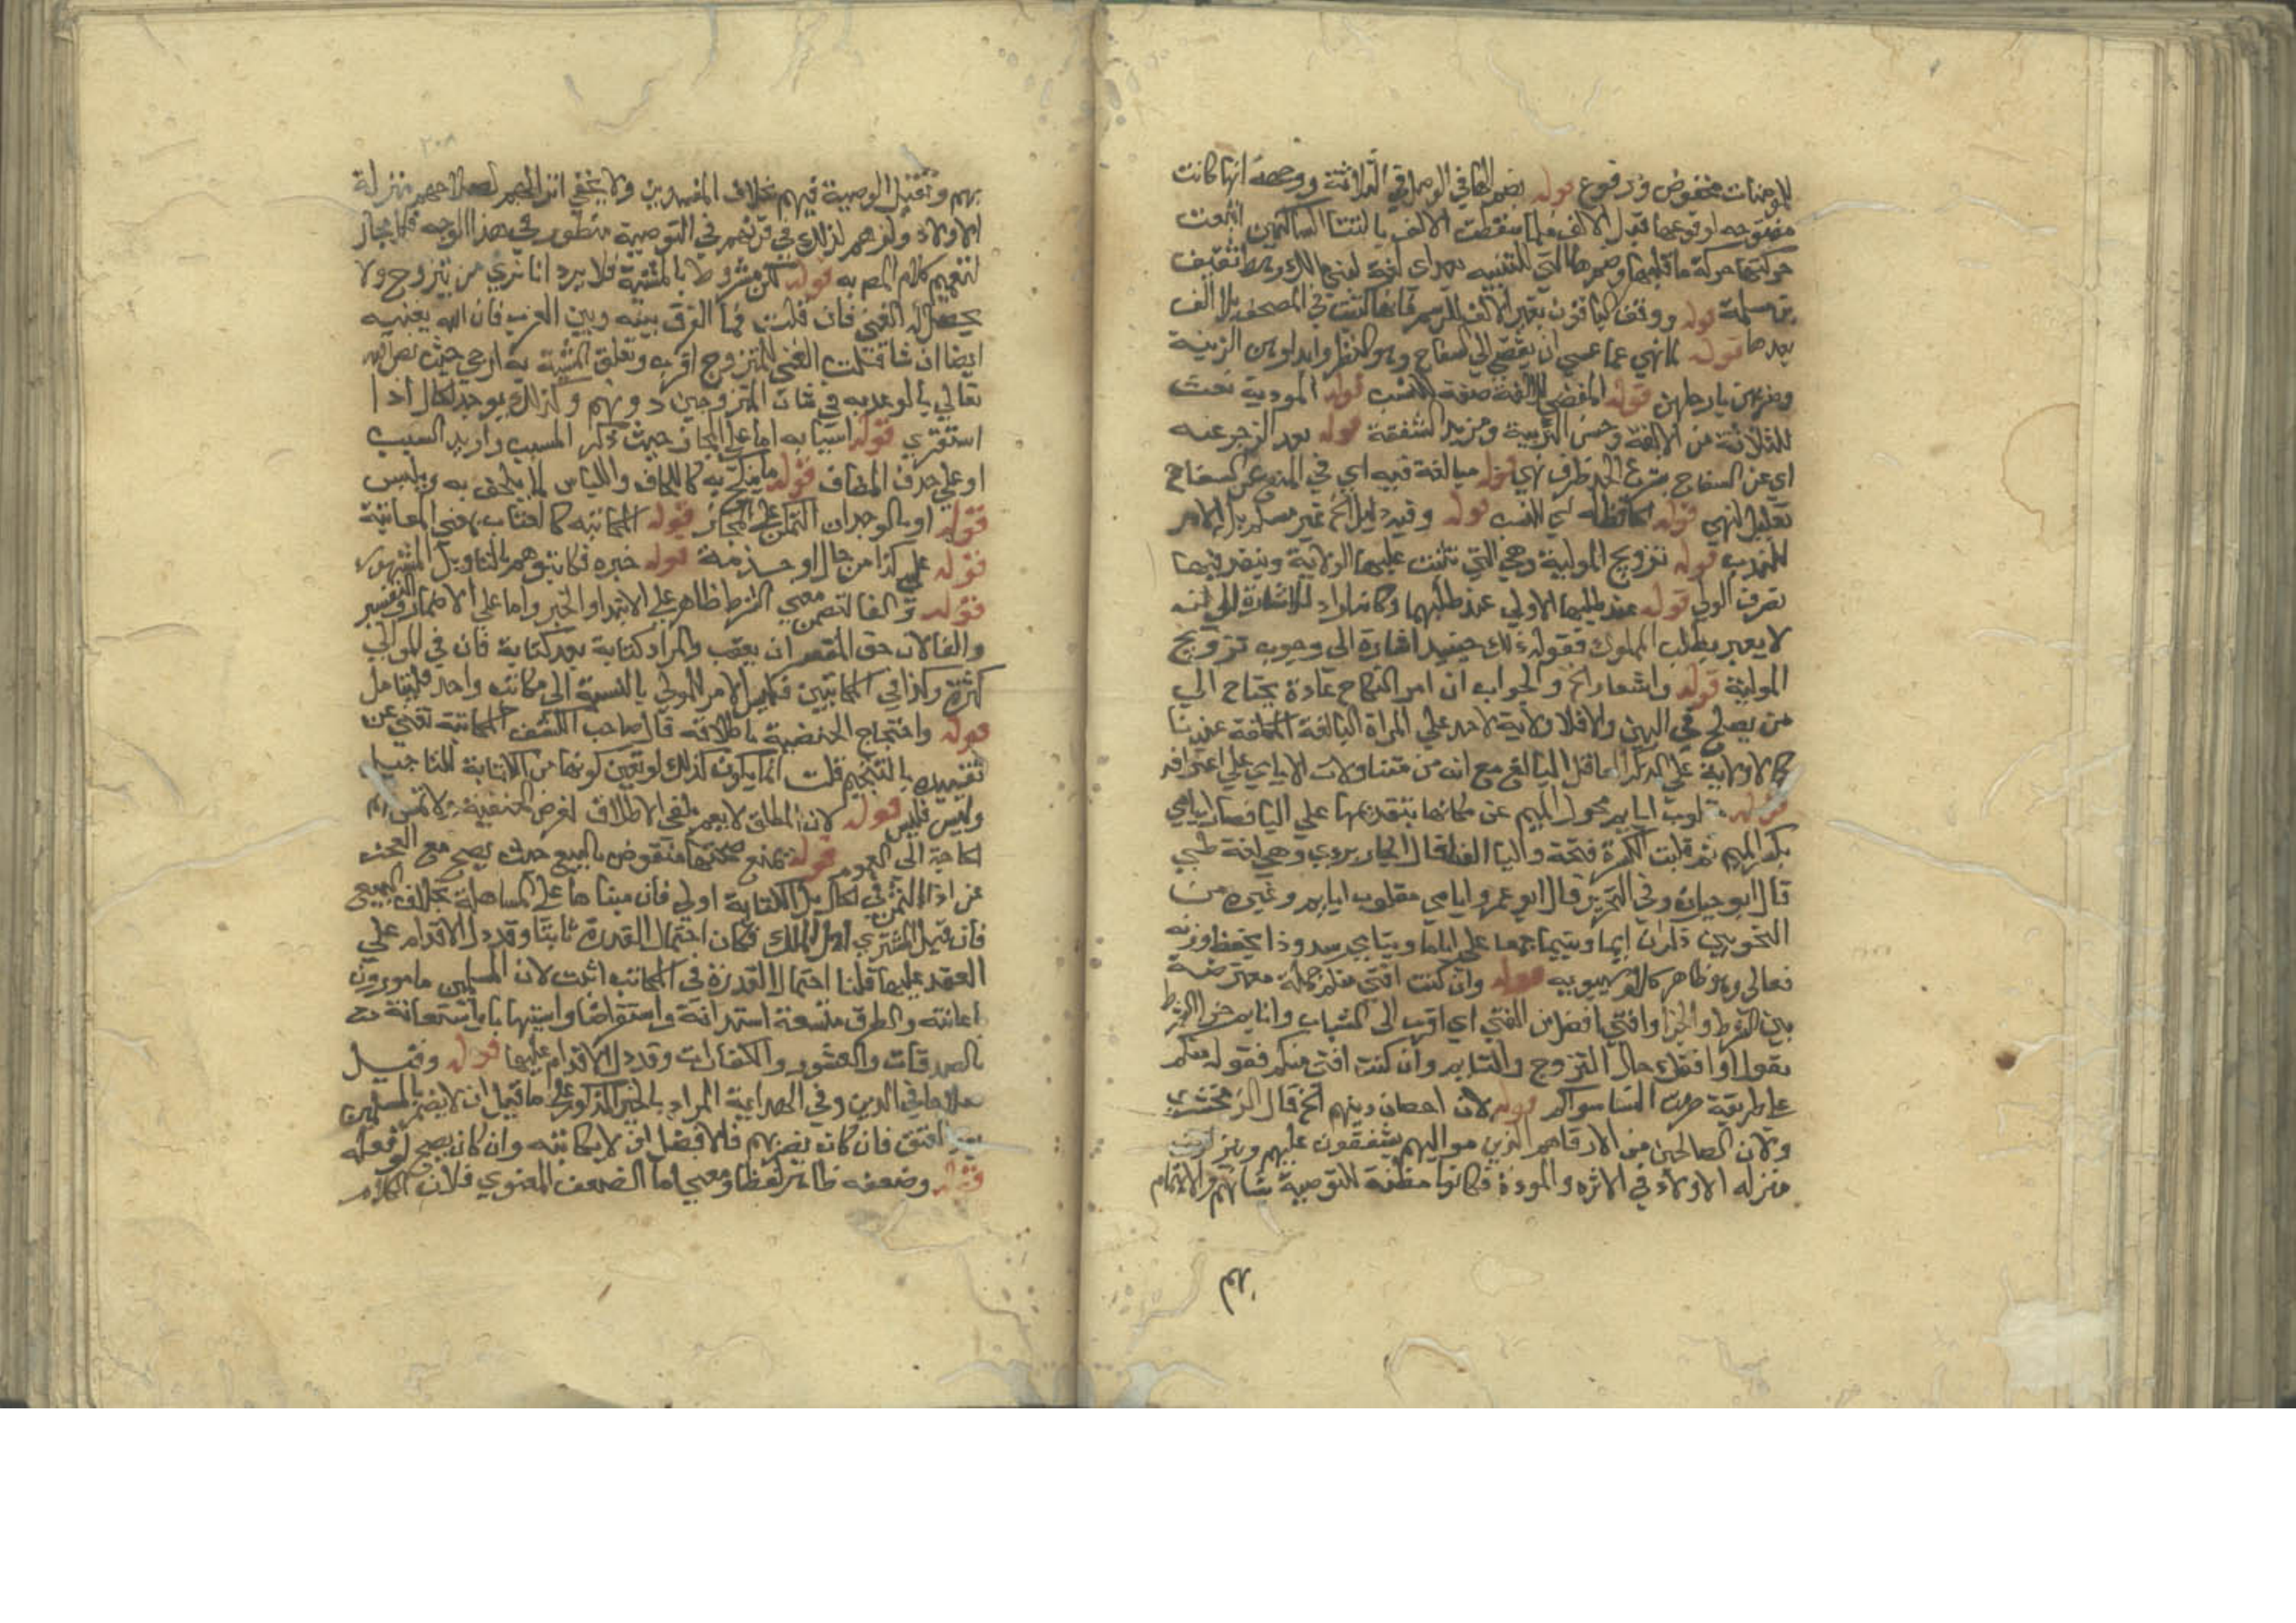 للمومنات مخفوض ورفوع قوله بضم الها في الوصل في الثلاثة ووجهه انها كانت
مفتوحه لوقوعها قبل الالف فلما سقطت الالف بالتقا الساكنين اتبعت
حركتها حركة ما قبلها وضم ها التي للتنبيه بعد اي لغة لبني مالك رهط شقيق
بن سلمة قوله ووقف الباقون بغير الالف للرسم فانها كتبت في المصحف بلا الف
بعدها قوله لما نهي عما عسي ان يفضي الى السفاح وهو النظر وابداوهن الزينة
وضربهن بارجلهن قوله المفضي للالفة صفة للنسب قوله المودية نعت
للثلاثة من الالفة وحسن التربية ومزيد الشفقة قوله بعد الزجر عنه
اي عن السفاح متعلق ظرف نهي قوله مبالغة فيه اي في المنع عن السفاح
تعليل لنهي قوله الحافظ له اي للنسب قوله وفيه دليل الخ غير مسلم بل الامر
للندب قوله تزويج المولية وهي التي تثبت عليها الولاية وينفذ فيها
تصرف الولي قوله عند طلبها الاولي عند طلبهما وكانه اراد للاشارة الى انه
لا يعبر بطلب المملوك فقوله ذلك حينيذ اشارة الى وجوب تزويج
المولية قوله واشعار الخ والجواب ان امر النكاح عادة يحتاج الي
من يصلح في البين والا فلا ولاية لاحد علي المراة البالغة العاقلة عندنا
كما لا ولاية علي الذكر العاقل البالغ مع انه من متناولات الايامي علي اعترافه
قوله مقلوب ايايم محول الميم عن مكانها بتقديمها علي اليا فصار ايامي
بكسر الميم ثم قلبت الكسرة فتحة واليا الفا قال الجاربردي وهي لغة طي
قال ابو حيان وفي التحرير قال ابو عمرو ايامي مقلوب ايايم وغيره من
النحويين ذكر ان ايما ويتيما جمعا علي ايامي ويتامي شذوذا يحفظ وزنه
فعالي وهو ظاهر كلام سيبويه قوله وان كنت افتي منكم جملة معترضة
بين الشرط والجزا وافتي افضل من الفتي اي اقرب الى الشباب وانايم جزا الشرط
يقول اوافقك حال التزوج والتايم وان كنت افتي منكم فقوله منكم
علي طريقة حرمت النسا سواكم قوله لان احصان دينهم الخ قال الزمخشري
ولان الصالحين من الارقا هم الذين مواليهم يشفقون عليهم وينزلونهم
منزلة الاولاد في الاثرة والمودة فكانوا مظنة للتوصية بشانهم والاهتمام
بهم
٢٠٨
بهم وتقبل الوصية فيهم بخلاف المفسدين ولا يخفي ان انزالهم لصلاحهم منزلة
الاولاد وذكرهم لذلك في قرنهم في التوصية منظور في هذا الوجه فلا مجال
لتعميم كلام المص به قوله لكن مشروط بالمشية فلا يرد انا نري من يتزوج ولا
يحصل له الغني فان قلت فما الفرق بينه وبين العزب فان الله يغنيه
ايضا ان شا قلت الغني للمتزوج اقرب وتعلق المشية به ارجي حيث نص الله
تعالي بالوعد به في شان المتزوجين دونهم وكذلك يوجد لكال اذا
استقري قوله اسبابه اما علي المجاز حيث ذكر المسبب واريد السبب
او علي حذف المضاف قوله ما ينكح به كاللحاف واللباس لما يلحف به ويلبس
قوله او بالوجدان التمكن علي المجاز قوله المكاتبه كالعتاب بمعني المعاتبة
قوله علي كذا من جال او خدمة قوله خبره فكاتبوهم بالتاويل المشهور
قوله والفا لتضمن معني الشرط ظاهر علي الابتدا والخبر واما علي الاضمار والتفسير
والفا لان حق المفسر ان يعقب والمراد كتابة بعد كتابة فان في الموالي
كثرة وكذا في المكاتبين فليس الامر للمولي بالنسبة الى مكاتبه واحد فليتامل
قوله واحتجاج الحنفية باطلاقه قال صاحب الكشف المكاتبة تغني عن
تقييده بالتنجيم قلت انما يكون كذلك لو تعين كونها من الكتابة للتاجيل
وليس فليس قوله لان المطلق لا يعم يكفي الاطلاق لغرض الحنفية ولا تمس لهم
الحاجة الى العموم قوله تمنع صحتها منقوض بالبيع حيث يصح مع العجز
عن اداء الثمن في الحال بل الكتابة اولي فان مبناها علي المساهلة بخلاف البيع
فان قيل المشتري اهل للملك فكان احتمال القدرة ثابتا وقد دل الاقدام علي
العقد عليها قلنا احتمال القدرة في المكاتب اثبت لان المسلمين مامورون
باعانته والطرق متسعة استدانة واستقراضا واستيهابا واستعانة
بالصدقات والعشور والكفارات وقد دل الاقدام عليها قوله وقيل
صلاحا في الدين وفي الهداية المراد بالخير المذكور علي ما قيل ان لا يضر بالمسلمين
بعد العتق فان كان يضر بهم فالافضل ان لا يكاتبه وان كان يصح لو فعله
قوله وضعفه ظاهر لفظا ومعني اما الضعف المعنوي فلان الكلام